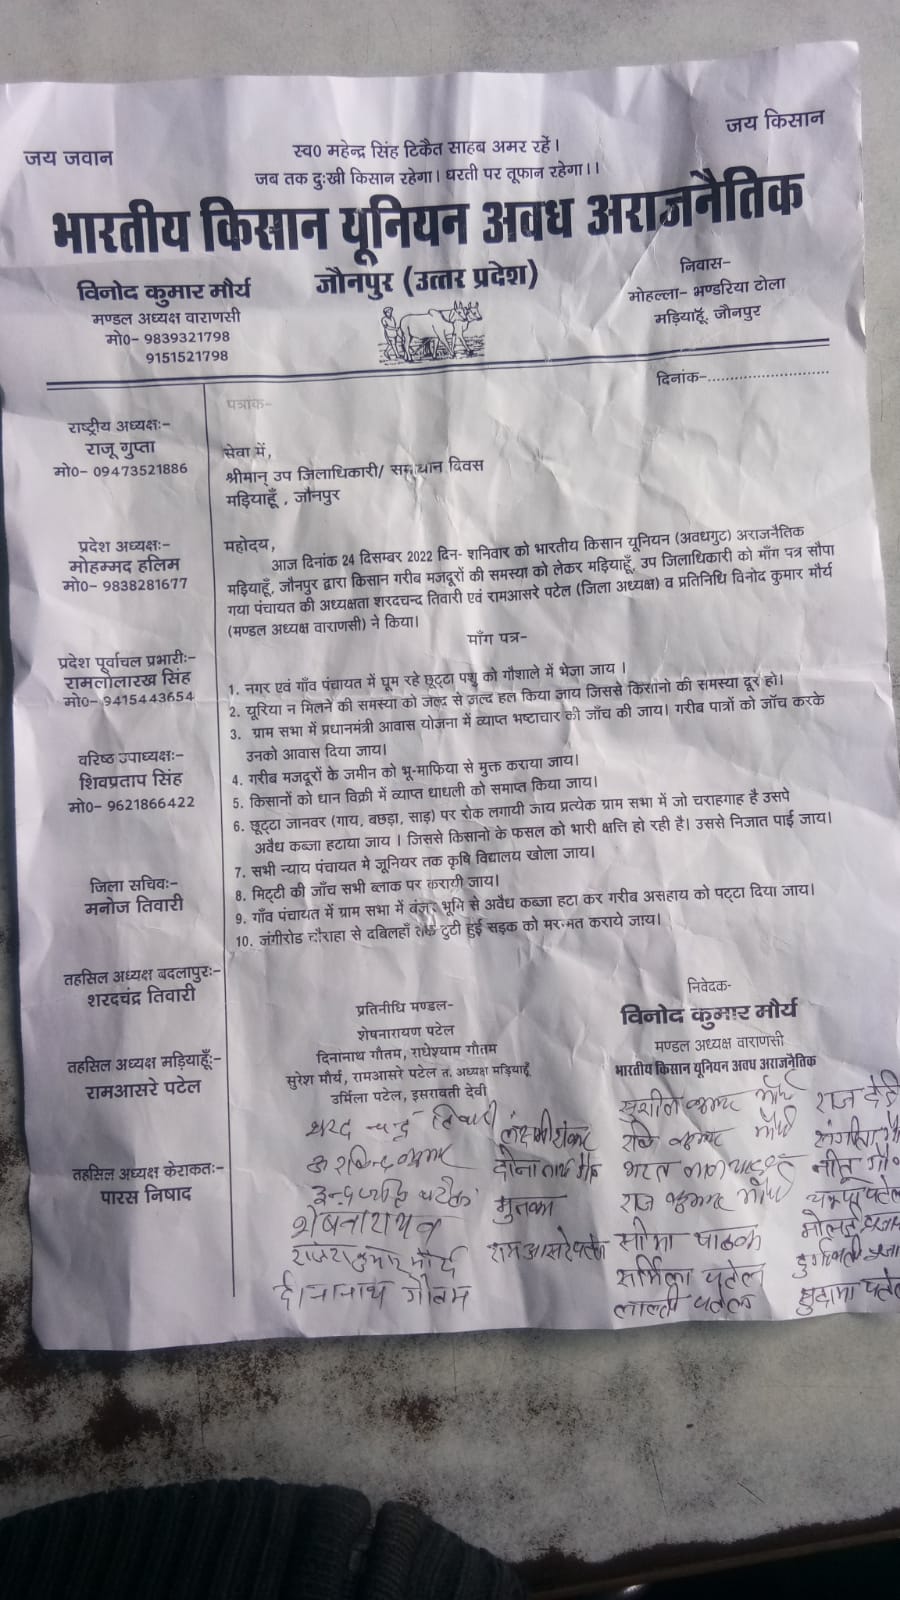 जय जवान
जय किसान
स्व0 महेन्द्र सिंह टिकैत साहब अमर रहें।
जब तक दुःखी किसान रहेगा। धरती पर तूफान रहेगा।।
भारतीय किसान यूनियन अवध अराजनैतिक
जौनपुर (उत्तर प्रदेश)
विनोद कुमार मौर्य
मण्डल अध्यक्ष वाराणसी
मो0- 9839321798
9151521798
निवास-
मोहल्ला- भण्डरिया टोला
मड़ियाहूॅ, जौनपुर
दिनांक-..........................
राष्ट्रीय अध्यक्षः-
राजू गुप्ता
मो0- 09473521886
प्रदेश अध्यक्षः-
मोहम्मद हलिम
मो0- 9838281677
प्रदेश पूर्वांचल प्रभारीः-
रामलोलारख सिंह
मो0- 9415443654
वरिष्ठ उपाध्यक्षः-
शिवप्रताप सिंह
मो0- 9621866422
जिला सचिवः-
मनोज तिवारी
तहसिल अध्यक्ष बदलापुरः-
शरदचंद्र तिवारी
तहसिल अध्यक्ष मड़ियाहूॅः-
रामआसरे पटेल
तहसिल अध्यक्ष केराकतः-
पारस निषाद
पत्रांक-
सेवा में,
श्रीमान् उप जिलाधिकारी/ समाधान दिवस
मड़ियाहूँ , जौनपुर
महोदय,
आज दिनांक 24 दिसम्बर 2022 दिन- शनिवार को भारतीय किसान यूनियन (अवधगुट) अराजनैतिक
मड़ियाहूॅ, जौनपुर द्वारा किसान गरीब मजदूरों की समस्या को लेकर मड़ियाहूॅ, उप जिलाधिकारी को मॉग पत्र सौपा
गया पंचायत की अध्यक्षता शरदचन्द तिवारी एवं रामआसरे पटेल (जिला अध्यक्ष) व प्रतिनिधि विनोद कुमार मौर्य
(मण्डल अध्यक्ष वाराणसी) ने किया।
मॉग पत्र-
1. नगर एवं गॉव पंचायत में घूम रहे छूट्टा पशु को गौशाले में भेजा जाय ।
2. यूरिया न मिलने की समस्या को जल्द से जल्द हल किया जाय जिससे किसानो की समस्या दूर हो।
3. ग्राम सभा में प्रधानमंत्री आवास योजना में व्याप्त भष्टाचार की जॉच की जाय। गरीब पात्रों को जॉच करके
उनको आवास दिया जाय।
4. गरीब मजदूरों के जमीन को भू-माफिया से मुक्त कराया जाय।
5. किसानों को धान विक्री में व्याप्त धाधली को समाप्त किया जाय।
6. छूट्टा जानवर (गाय, बछड़ा, साड़) पर रोक लगायी जाय प्रत्येक ग्राम सभा में जो चराहगाह है उसपे
अवैध कब्जा हटाया जाय । जिससे किसानो के फसल को भारी क्षत्ति हो रही है। उससे निजात पाई जाय।
7. सभी न्याय पंचायत मे जूनियर तक कृषि विद्यालय खोला जाय।
8. मिट्टी की जॉच सभी ब्लाक पर करायी जाय।
9. गॉव पंचायत में ग्राम सभा में बंजर भूमि से अवैध कब्जा हटा कर गरीब असहाय को पट्टा दिया जाय।
10. जंगीरोड चौराहा से दबिलहॉ तक टुटी हुई सड़क को मरम्मत कराये जाय।
प्रतिनीधि मण्डल-
शेषनारायण पटेल
दिनानाथ गौतम, राधेश्याम गौतम
सुरेश मौर्य, रामआसरे पटेल त. अध्यक्ष मड़ियाहूॅ
उर्मिला पटेल, इसरावती देवी
निवेदक-
विनोद कुमार मौर्य
मण्डल अध्यक्ष वाराणसी
भारतीय किसान यूनियन अवध अराजनैतिक
शरद चन्द्र तिवारी
शेषनारायण
राजेश कुमार मौर्य
दीनानाथ गौतम
मुनका
रामआसरे पटेल
सुशील कुमार मौर्य
रवि कुमार मौर्य
राज कुमार मौर्य
सीमा पाठक
सर्मिला पटेल
लालती पटेल
राज देवी
सुदामा पटेल